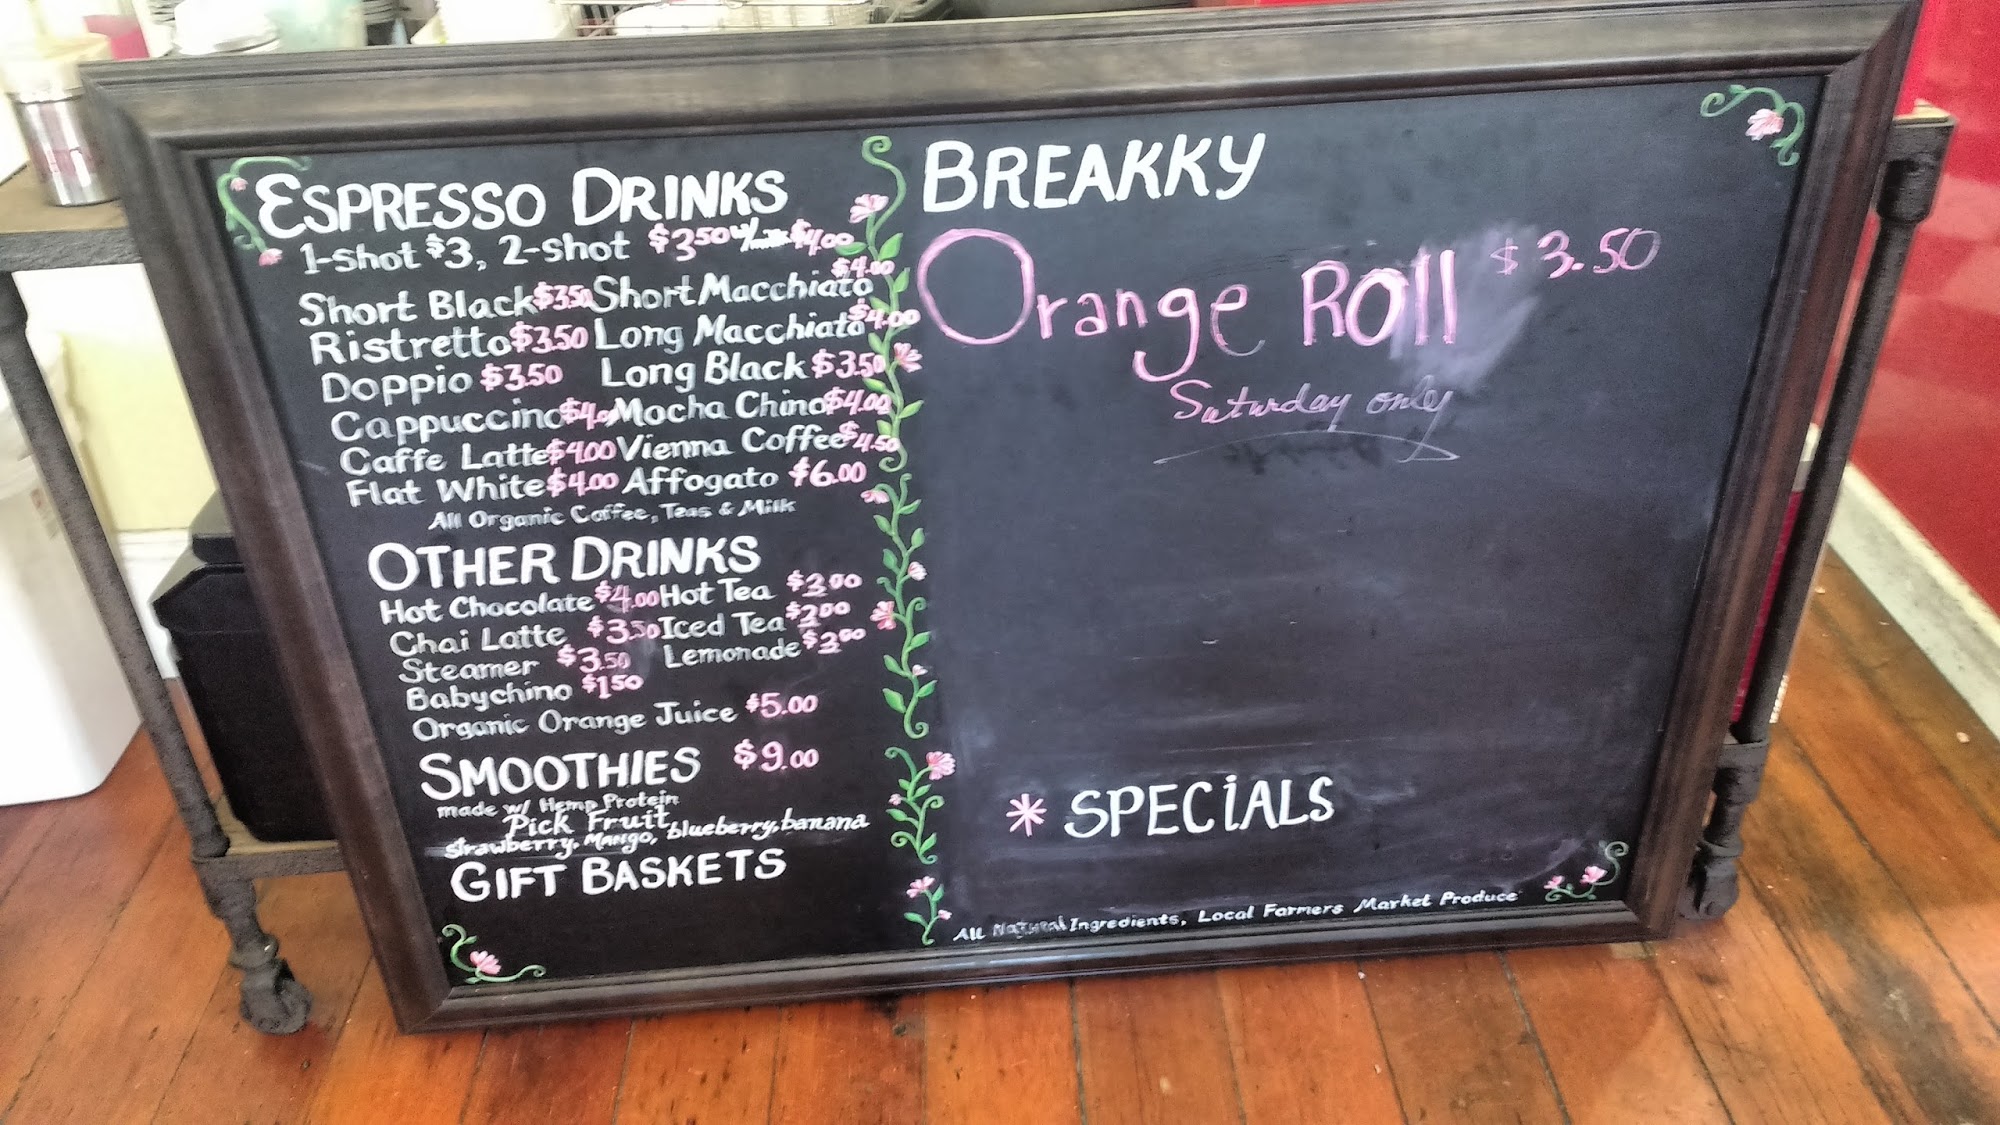 ESPRESSO DRINKS
1-shot $3, 2-shot $3.50 w/milk $4.00
Short Black $3.50 Short Macchiato $4.00
Ristretto $3.50 Long Macchiato $4.00
Doppio $3.50 Long Black $3.50
Cappuccino $4.00 Mocha Chino $4.00
Caffe Latte $4.00 Vienna Coffee $4.50
Flat White $4.00 Affogato $6.00
All Organic Coffee, Teas & Milk
OTHER DRINKS
Hot Chocolate $4.00 Hot Tea
Chai Latte $3.50 Iced Tea
Steamer $3.50 Lemonade
Babychino $1.50
Organic Orange Juice $5.00
SMOOTHIES $9.00
made w/ Hemp Protein
Pick Fruit
strawberry, Mango, blueberry, banana
GIFT BASKETS
BREAKKY
Orange Roll $3.50
Saturday only
* SPECiALS
All Natural Ingredients, Local Farmers Market Produce